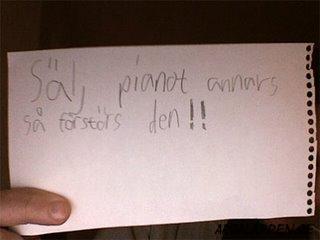 Sälj pianot annars
så förstörs den!!